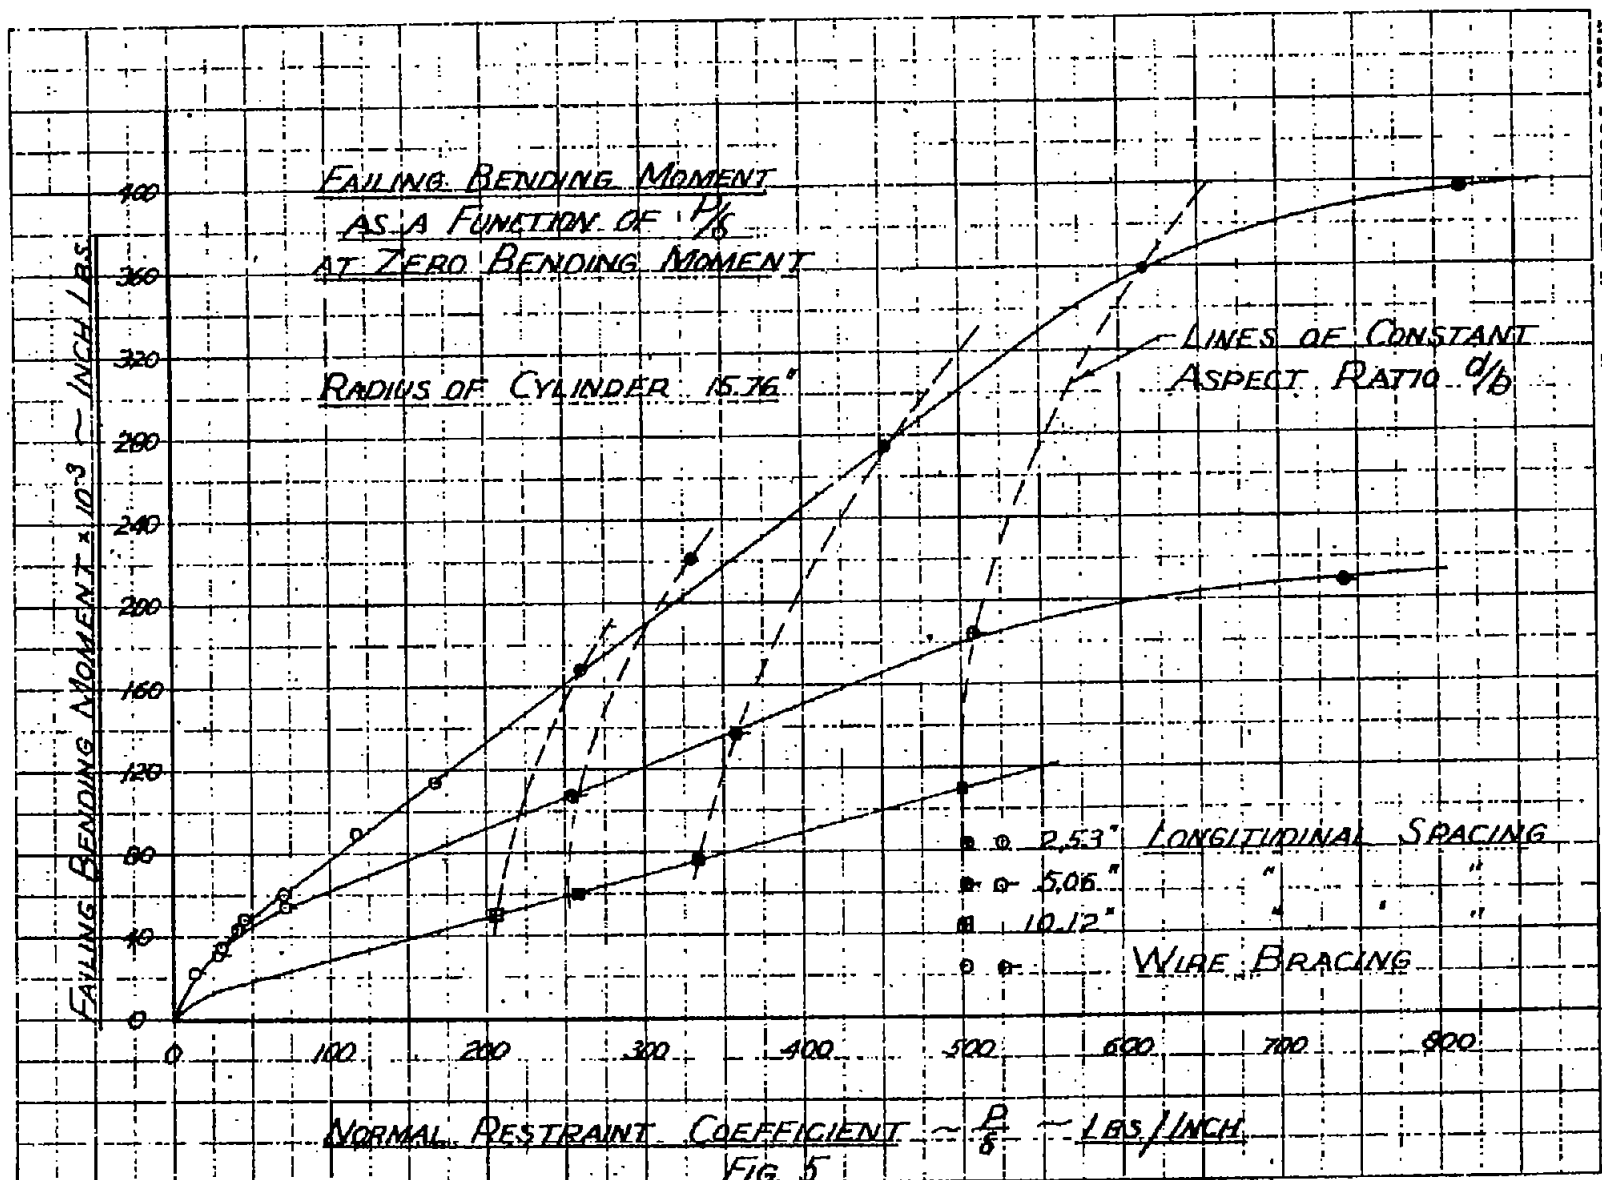 FAILING BENDING MOMENT
AS A FUNCTION OF P/δ
AT ZERO BENDING MOMENT
RADIUS OF CYLINDER 15.76"
LINES OF CONSTANT
ASPECT RATIO d/b
FAILING BENDING MOMENT × 10-3 ~ INCH LBS.
400
360
320
280
240
200
160
120
80
40
0
2.53" LONGITUDINAL SPACING
5.06" " "
10.12" " " "
WIRE BRACING
0 100 200 300 400 500 600 700 800
NORMAL RESTRAINT COEFFICIENT ~ P/δ ~ LBS/INCH
FIG. 5